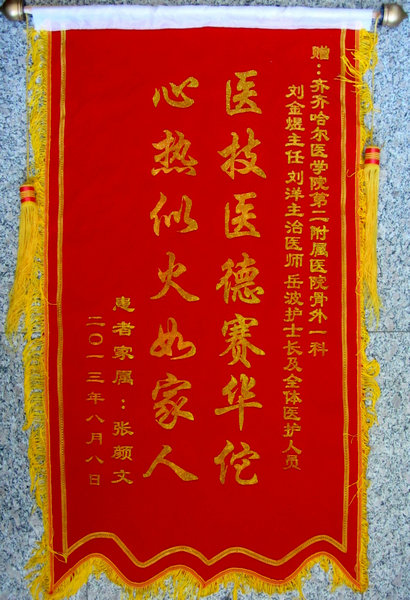 赠：齐齐哈尔医学院第二附属医院骨外一科
刘金煜主任 刘洋主治医师 岳波护士长及全体医护人员
医技医德赛华佗
心热似火如家人
患者家属：张颜文
二〇一三年八月八日